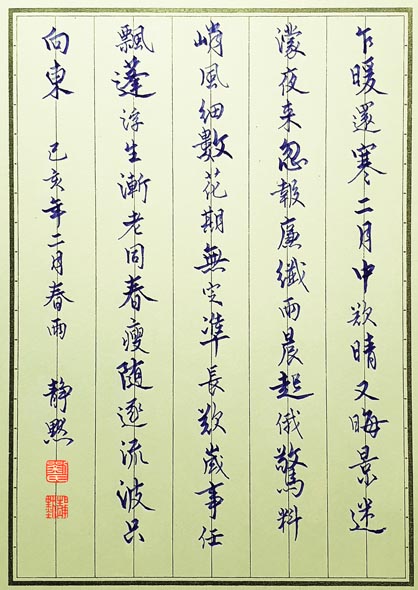 乍暖還寒二月中欲晴又晦景迷
濛夜来忽報廉纖雨晨起俄驚料
峭風細數花期無定準長歎歲事任
飄蓬浮生漸老同春瘦随逐流波只
向東 己亥年二月春雨 静默